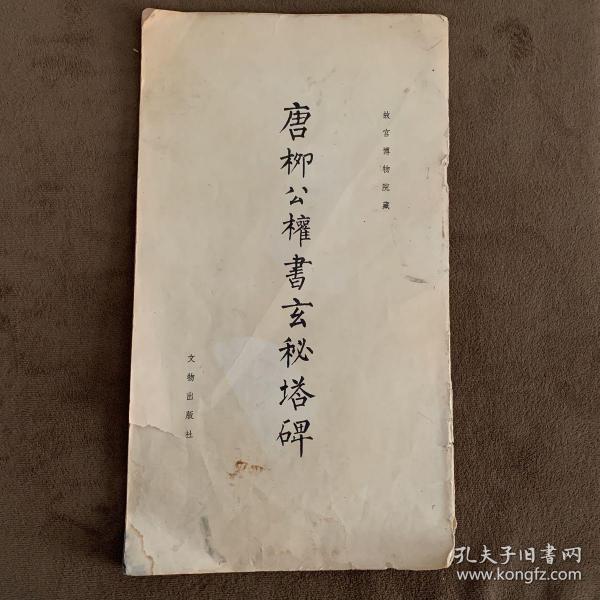 故宫博物院藏
唐柳公權書玄秘塔碑
文物出版社
孔夫子旧书网
www.kongfz.com